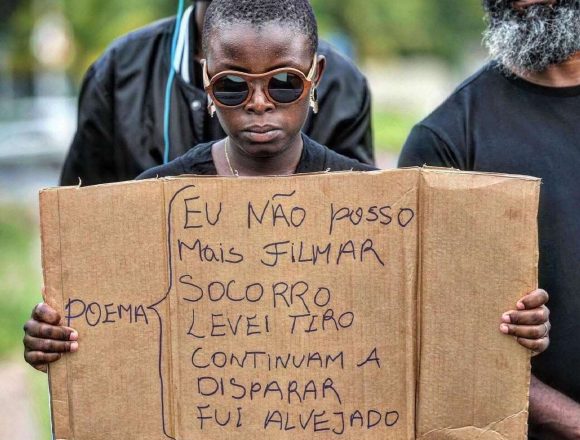 POEMA
EU NÃO POSSO
MAIS FILMAR
SOCORRO
LEVEI TIRO
CONTINUAM A
DISPARAR
FUI ALVEJADO